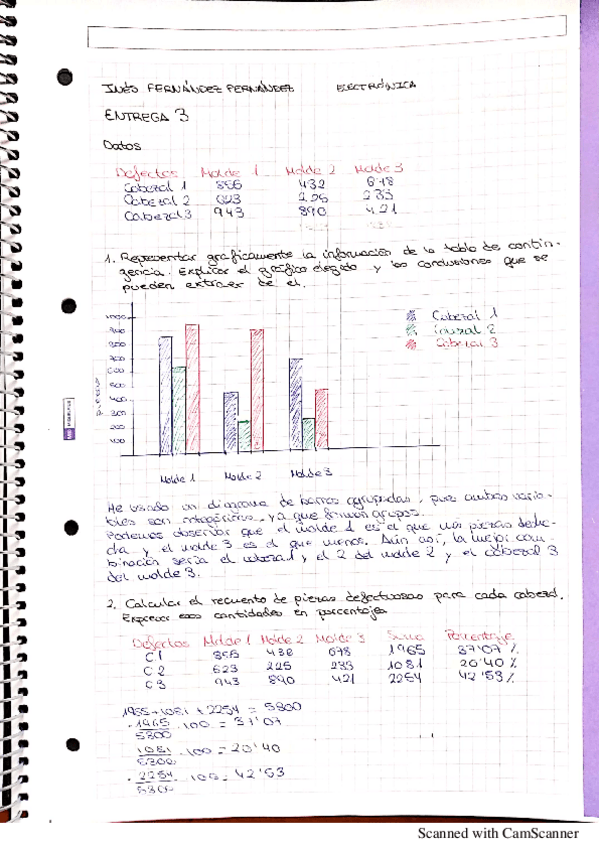 INÉS FERNÁNDEZ FERNÁNDEZ ELECTRÓNICA
ENTREGA 3
Datos
Defectos Molde 1 Molde 2 Molde 3
Cabezal 1 856 432 678
Cabezal 2 623 225 233
Cabezal 3 943 890 421
1. Representar gráficamente la información de la tabla de contin-
gencia. Explicar el gráfico elegido y las conclusiones que se
pueden extraer de él.
1000
900
800
700
600
500
400
300
200
100
Cabezal 1
Cabezal 2
Cabezal 3
Molde 1 Molde 2 Molde 3
He usado un diagrama de barras agrupadas, pues ambas varia-
bles son categóricas, ya que forman grupos.
Podemos observar que el molde 1 es el que más piezas
y el molde 3 es el que menos. Aún así, la mejor com-
binación sería el cabezal y el 2 del molde 2 y el cabezal 3
del molde 3.
2. Calcular el recuento de piezas defectuosas para cada cabezal.
Expresar esas cantidades en porcentajes
Defectos Molde 1 Molde 2 Molde 3 Suma Porcentaje
C1 856 432 678 1965 37'07%
C2 623 225 233 1081 20'40%
C3 943 890 421 2254 42'53%
1965 + 1081 + 2254 = 5300
1965 .100 = 37'07
5300
1081 .100 = 20'40
5300
2254 .100 = 42'53
5300
Scanned with CamScanner